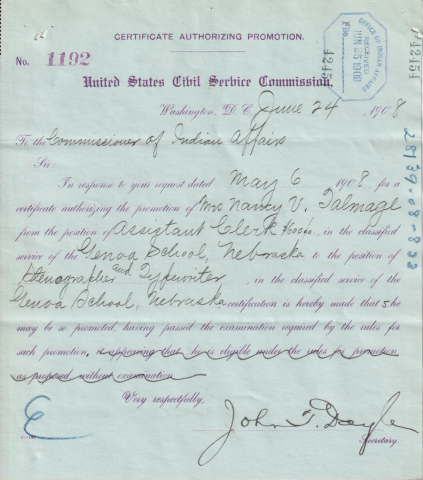 CERTIFICATE AUTHORIZING PROMOTION.
OFFICE OF INDIAN AFFAIRS
RECEIVED
JUN 25 1908
File
42454
42454
No. 1192
United States Civil Service Commission,
Washington, D. C., June 24 1908
To the Commissioner of Indian Affairs
Sir
In response to your request dated May 6 1908 for a
certificate authorizing the promotion of Mrs Nancy V. Talmage
from the position of Assistant Clerk $600 pa, in the classified
service of the Genoa School, Nebraska to the position of
Stenographer and Typewriter, in the classified service of the
Genoa School, Nebraska certification is hereby made that she
may be so promoted, having passed the examination required by the rules for
such promotion, it appearing that he is eligible under the rules for promotion
as proposed without examination
Very respectfully,
John T. Doyle
Secretary.
E